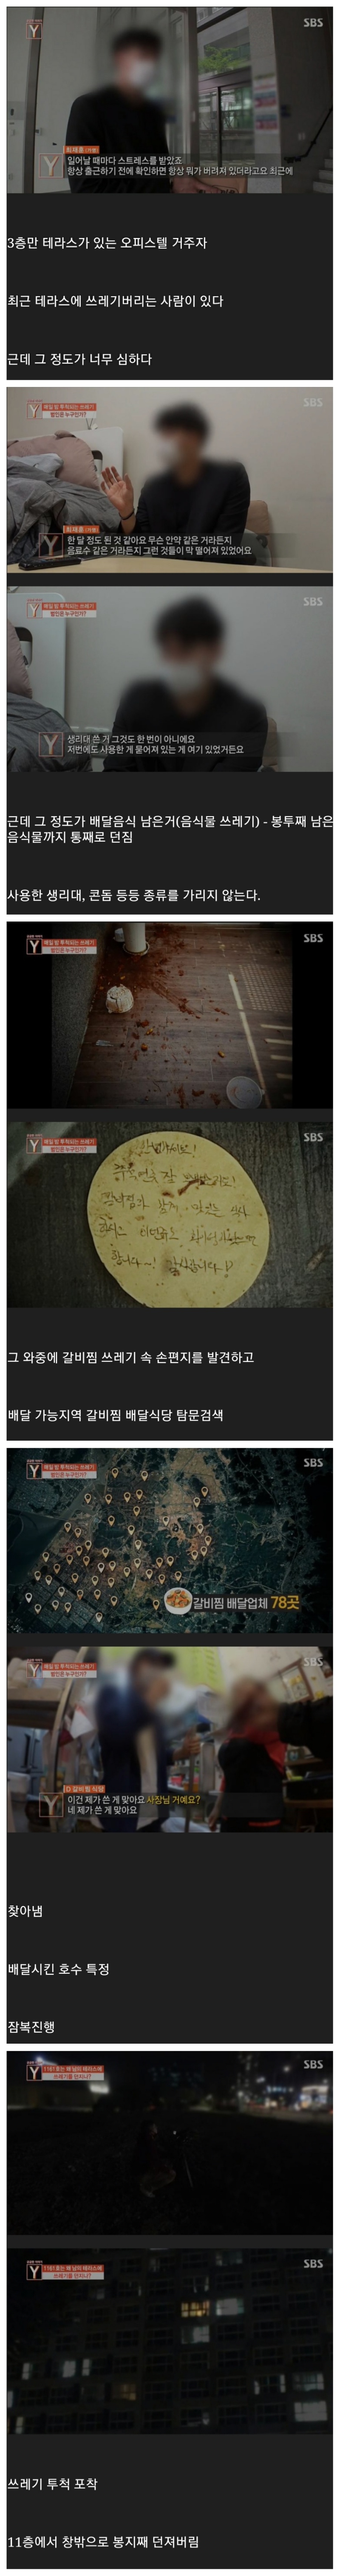 SBS
Y
최재훈 (가명)
일어날 때마다 스트레스를 받았죠
항상 출근하기 전에 확인하면 항상 뭐가 버려져 있더라고요 최근에
3층만 테라스가 있는 오피스텔 거주자
최근 테라스에 쓰레기버리는 사람이 있다
근데 그 정도가 너무 심하다
SBS
Y
매일 밤 투척되는 쓰레기
범인은 누구인가?
최재훈 (가명)
한 달 정도 된 것 같아요 무슨 안약 같은 거라든지
음료수 같은 거라든지 그런 것들이 막 떨어져 있었어요
SBS
Y
매일 밤 투척되는 쓰레기
범인은 누구인가?
생리대 쓴 거 그것도 한 번이 아니에요
저번에도 사용한 게 묻어져 있는 게 여기 있었거든요
근데 그 정도가 배달음식 남은거(음식물 쓰레기) - 봉투째 남은
음식물까지 통째로 던짐
사용한 생리대, 콘돔 등등 종류를 가리지 않는다.
SBS
Y
매일 밤 투척되는 쓰레기
범인은 누구인가?
SBS
Y
매일 밤 투척되는 쓰레기
범인은 누구인가?
그 와중에 갈비찜 쓰레기 속 손편지를 발견하고
배달 가능지역 갈비찜 배달식당 탐문검색
SBS
Y
매일 밤 투척되는 쓰레기
범인은 누구인가?
갈비찜 배달업체 78곳
SBS
Y
매일 밤 투척되는 쓰레기
범인은 누구인가?
D 갈비찜 식당
이건 제가 쓴 게 맞아요 사장님 거예요?
네 제가 쓴 게 맞아요
찾아냄
배달시킨 호수 특정
잠복진행
SBS
Y
쓰레기를 던지나?
SBS
Y
쓰레기를 던지나?
쓰레기 투척 포착
11층에서 창밖으로 봉지째 던져버림